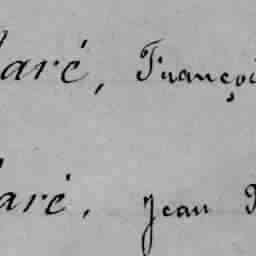 laré, Françoi
laré, Jean